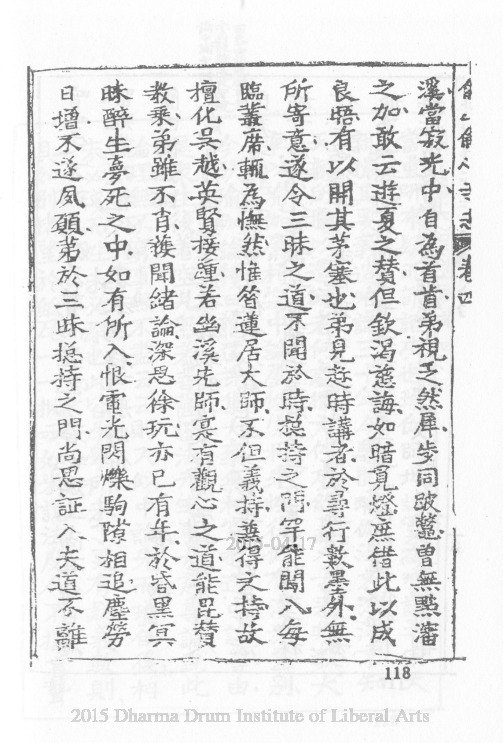 志 卷四
溪當寂光中自為首肯弟視王然犀步同跛鼈曾無點瀋
之加敢云遊夏之賛但欽渴慈誨如暗覓燈庶借此以成
良晤有以開其茅塞也弟見近時講者於尋行數墨外無
所寄意遂令三昧之道不聞於時揔持之門罕能闖入每
臨叢席輒為憮然惟管蓮居大師不但義持兼得文持故
擅化吳越英賢接踵若幽溪先師寔有觀心之道能毘賛
教乗弟雖不肖獲聞緒論深思徐玩亦已有年於昏黑冥
昧醉生夢死之中如有所入恨電光閃爍駒隙相追塵勞
日增不遂夙願苐於三昧揔持之門尚思証入夫道不離
118
2015 Dharma Drum Institute of Liberal Arts